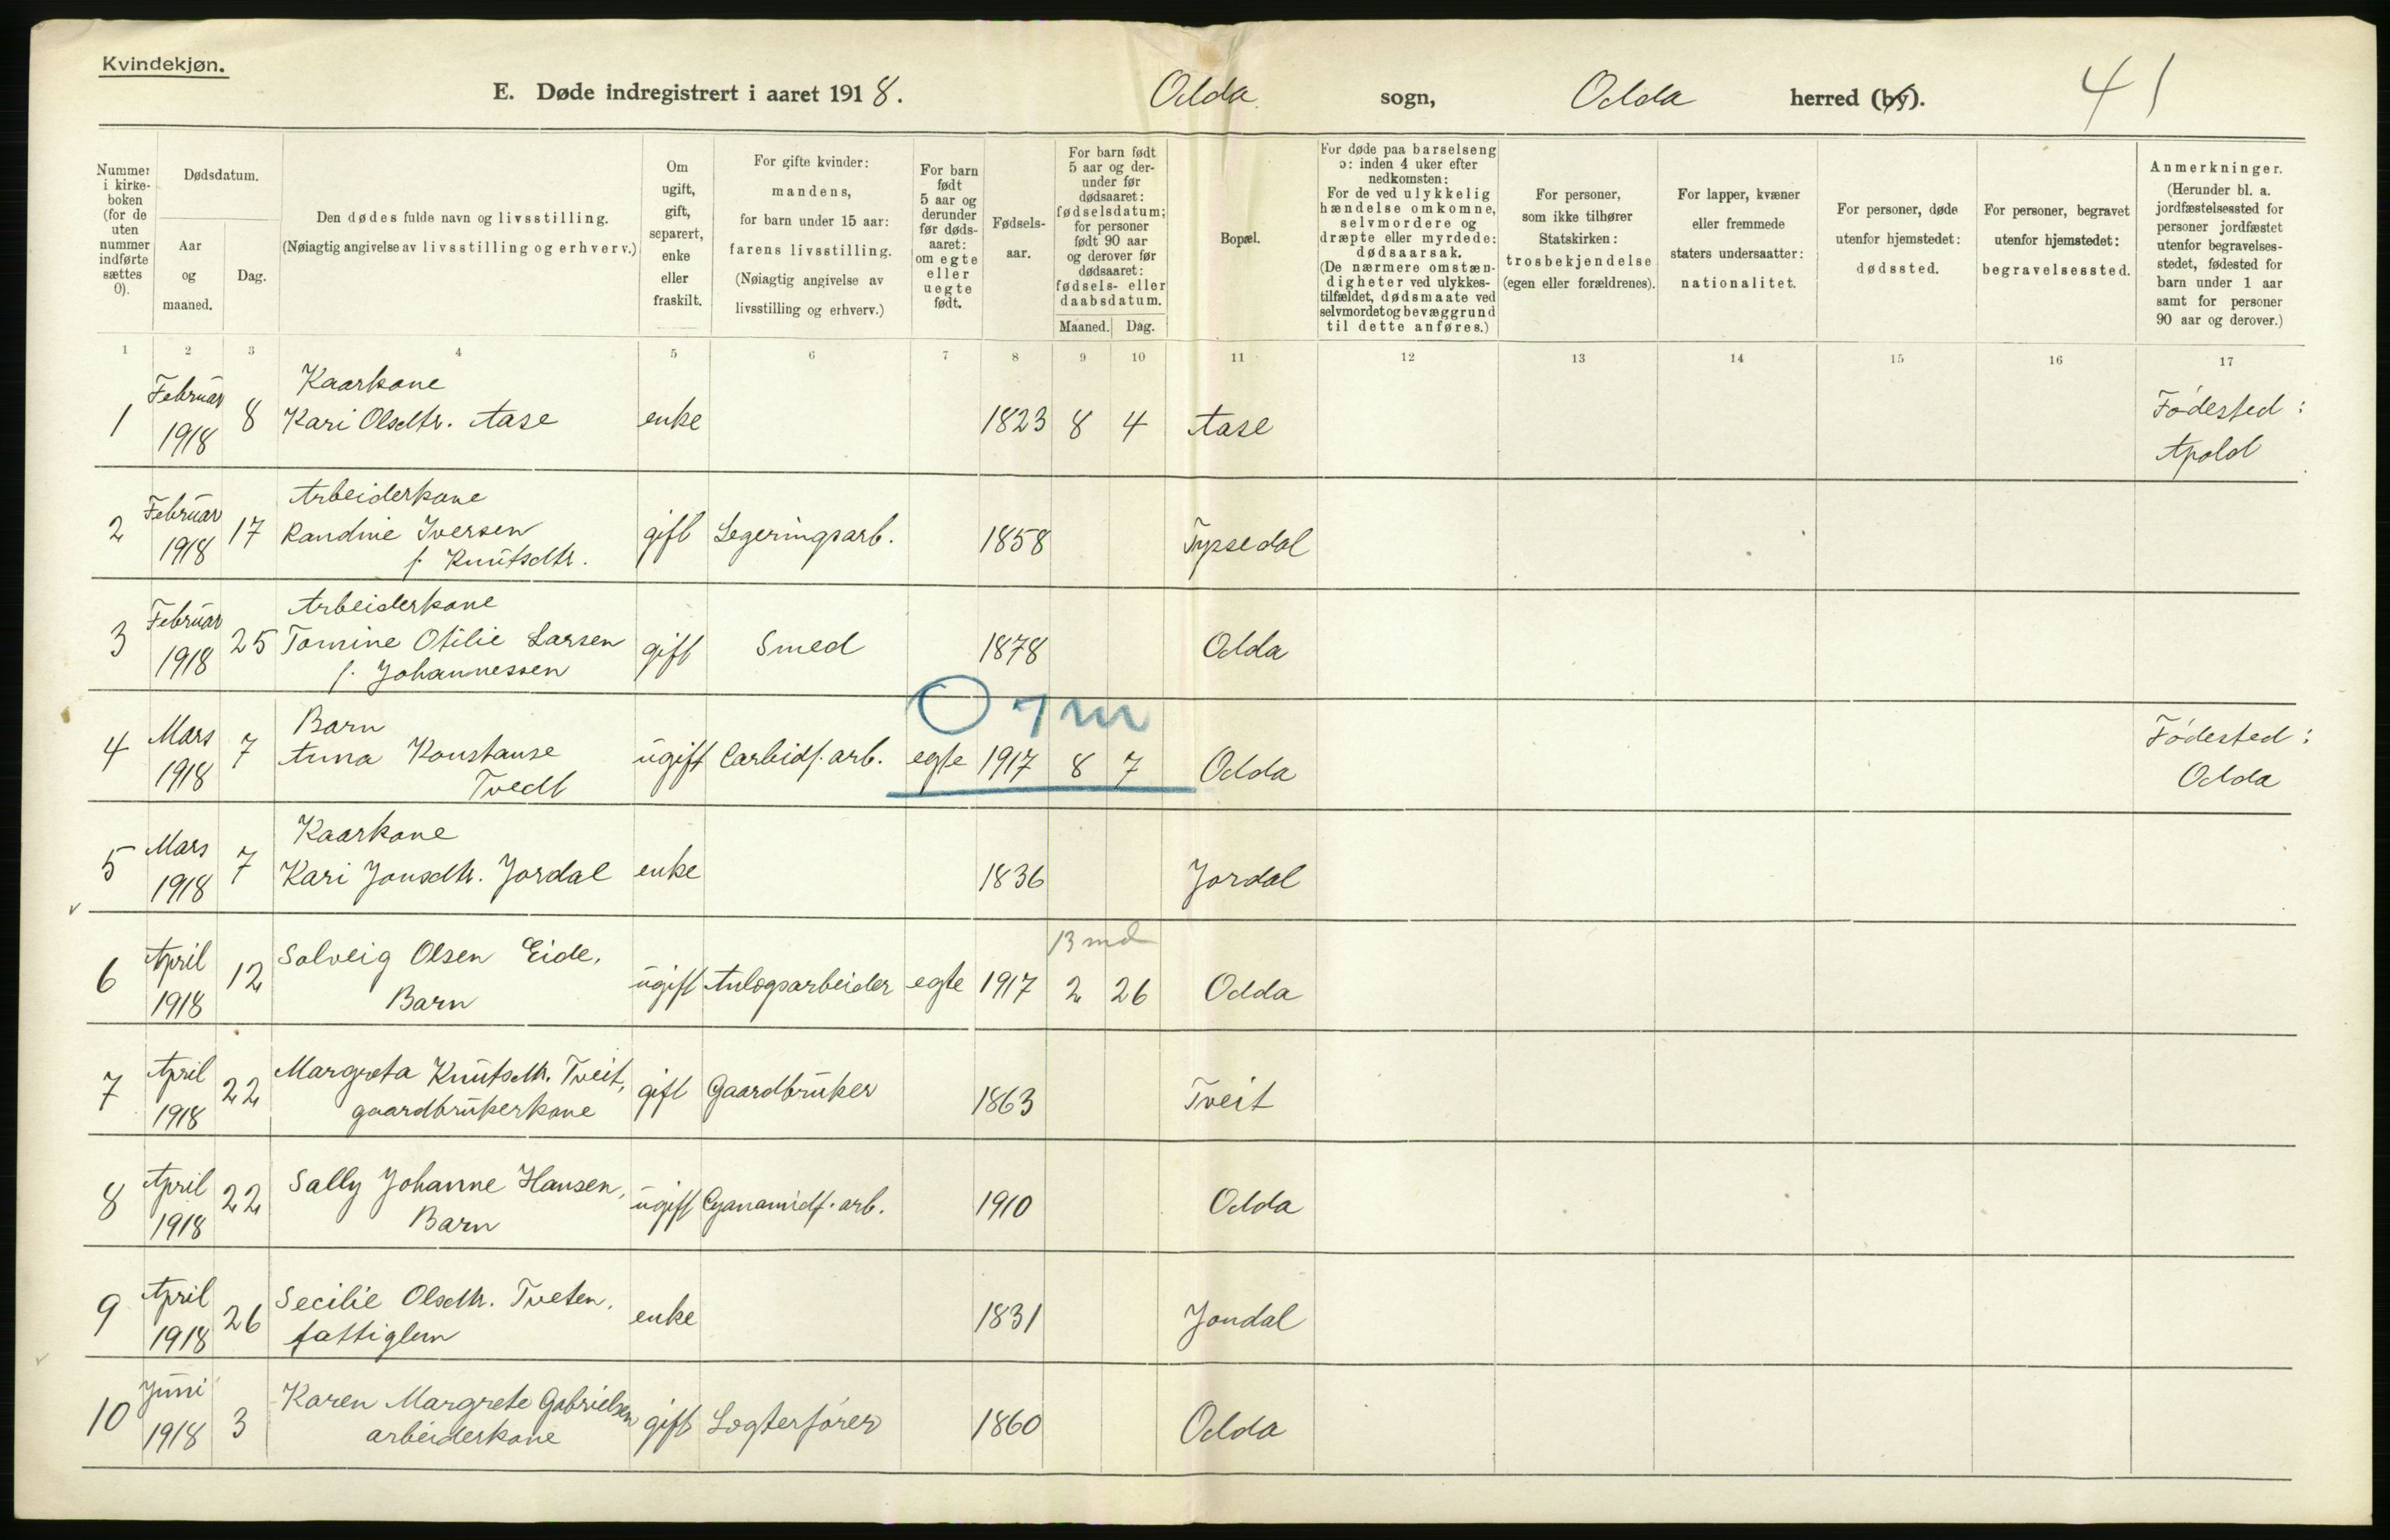 Kvindekjøn.
E. Døde indregistrert i aaret 1918. Odda sogn, Odda herred (by). 41
Nummer i kirkeboken (for de uten nummer indførte sættes 0).
Dødsdatum.
Aar og maaned.
Dag.
Den dødes fulde navn og livsstilling.
(Nøiagtig angivelse av livsstilling og erhverv.)
Om ugift, gift, separert, enke eller fraskilt.
For gifte kvinder: mandens, for barn under 15 aar: farens livsstilling. (Nøiagtig angivelse av livsstilling og erhverv.)
For barn født 5 aar og derunder før dødsaaret: om egte eller uegte født.
Fødselsaar.
For barn født 5 aar og derunder før dødsaaret: fødselsdatum; for personer født 90 aar og derover før dødsaaret: fødsels- eller daabsdatum.
Maaned. Dag.
Bopæl.
For døde paa barselseng ɔ: inden 4 uker efter nedkomsten: For de ved ulykkelig hændelse omkomne, selvmordere og dræpte eller myrdede: dødsaarsak. (De nærmere omstændigheter ved ulykkestilfældet, dødsmaate ved selvmordet og bevæggrund til dette anføres.)
For personer, som ikke tilhører Statskirken: trosbekjendelse (egen eller forældrenes).
For lapper, kvæner eller fremmede staters undersaatter: nationalitet.
For personer, døde utenfor hjemstedet: dødssted.
For personer, begravet utenfor hjemstedet: begravelsessted.
Anmerkninger. (Herunder bl. a. jordfæstelsessted for personer jordfæstet utenfor begravelsesstedet, fødested for barn under 1 aar samt for personer 90 aar og derover.)
1 2 3 4 5 6 7 8 9 10 11 12 13 14 15 16 17
1 Februar 1918 8 Kaarkone
Kari Olsdtr. Aase enke 1823 8 4 Aase Fødested: Apold
2 Februar 1918 17 Arbeiderkone
Randine Iversen
f. Knutsdtr. gift Legeringsarb. 1858 Tyssedal
3 Februar 1918 25 Arbeiderkone
Tomine Otilie Larsen
f. Johannessen gift Smed 1878 Odda
O 7 m
4 Mars 1918 7 Barn
Anna Konstanse
Tvedt ugift Carbidf. arb. egte 1917 8 7 Odda Fødested: Odda
5 Mars 1918 7 Kaarkone
Kari Jonsdtr. Jordal enke 1836 Jordal
13 md
6 April 1918 12 Solveig Olsen Eide,
Barn ugift Anlægsarbeider egte 1917 2 26 Odda
7 April 1918 22 Margreta Knutsdtr. Tveit,
gaardbrukerkone gift Gaardbruker 1863 Tveit
8 April 1918 22 Sally Johanne Hansen,
Barn ugift Cyanamidf. arb. 1910 Odda
9 April 1918 26 Secilie Olsdtr. Tveten,
fattiglem enke 1831 Jondal
10 Juni 1918 3 Karen Margrete Gabrielsen
arbeiderkone gift Lægterfører 1860 Odda